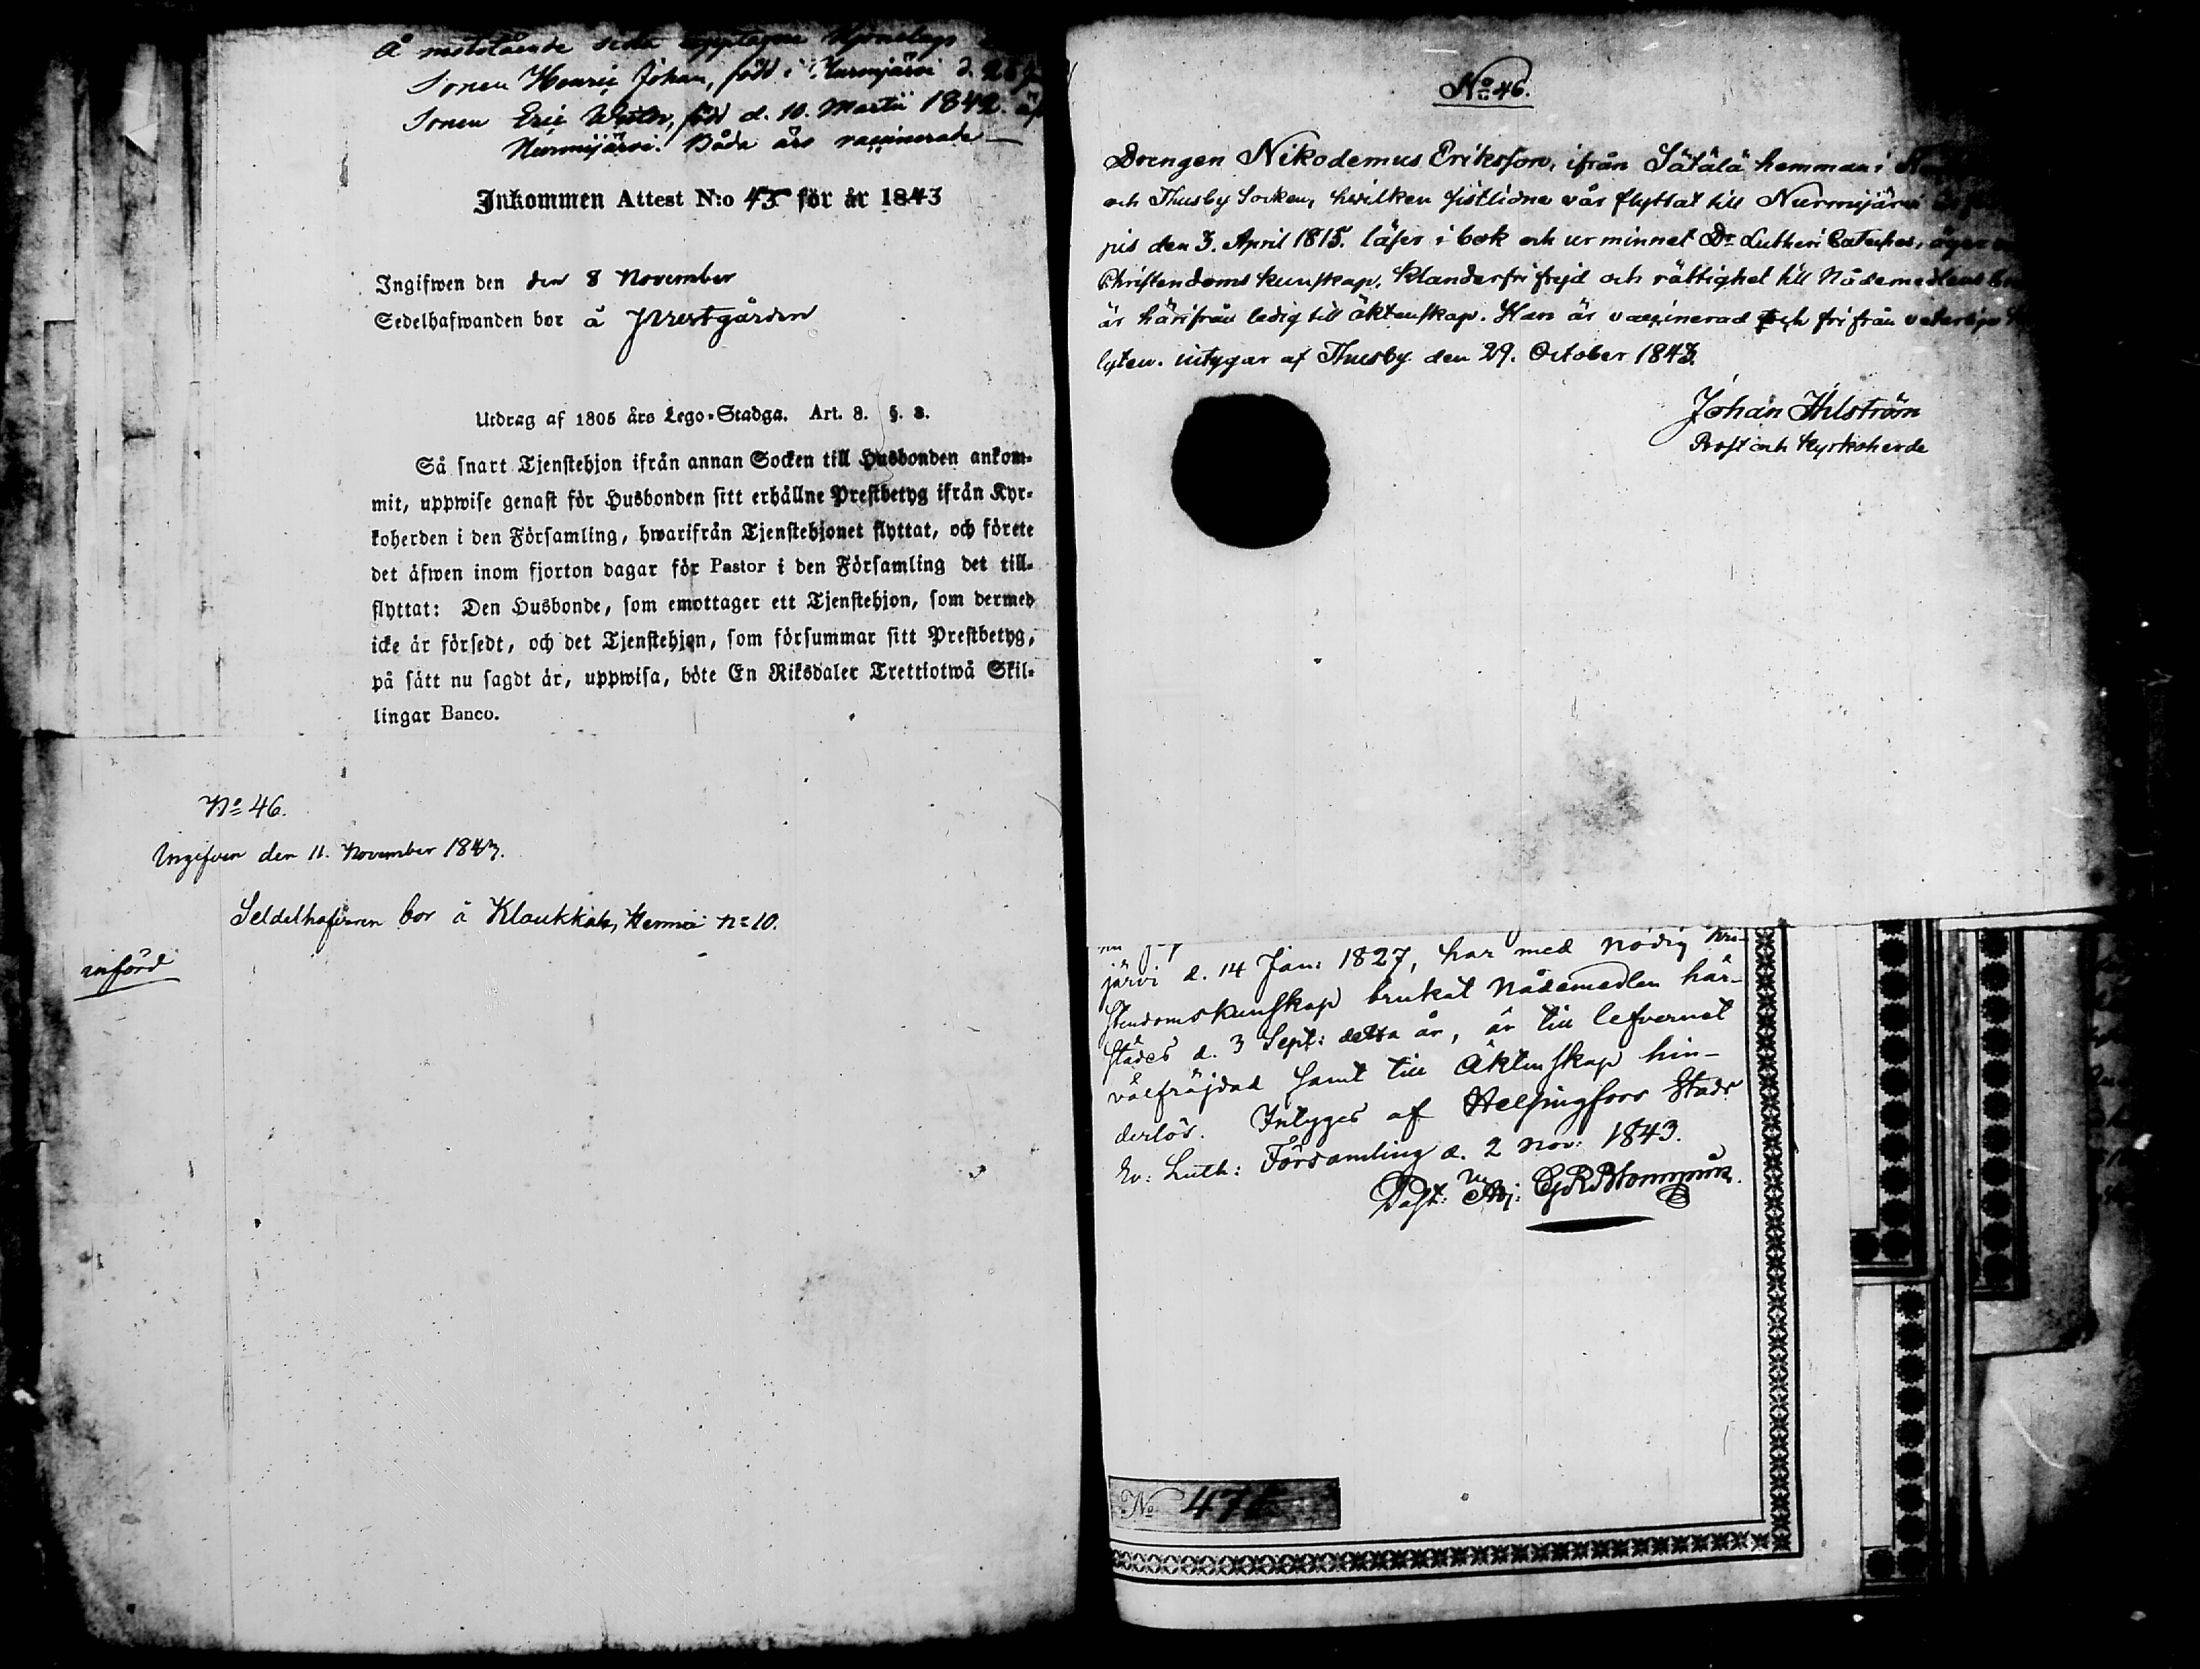 Å motstående sida upptagne Hjonelags
Sonen Henric Johan, född i Nurmijärvi d. 26
Sonen Eric född d. 10. Martii 1842.
Nurmijärvi. Båda äro vaccinerade —
Inkommen Attest N:o 45 för år 1843
Ingifwen den den 8 November
Sedelhafwanden bor å Prestgården
Utdrag af 1805 års Lego-Stadga. Art. 8. §. 3.
Så snart Tjenstehjon ifrån annan Socken till Husbonden ankom-
mit, uppwise genast för Husbonden sitt erhållne Prestbetyg ifrån Kyr-
koherden i den Församling, hwarifrån Tjenstehjonet flyttat, och förete
det äfwen inom fjorton dagar för Pastor i den Församling det till-
flyttat: Den Husbonde, som emottager ett Tjenstehjon, som dermed
icke är försedt, och det Tjenstehjon, som försummar sitt Prestbetyg,
på sätt nu sagdt är, uppwisa, böte En Riksdaler Trettiotwå Skil-
lingar Banco.
No 46.
Ingifven den 11. November 1843.
Seldelhafvaren bor å Klaukkala, No 10.
införd
No 46.
Drengen Nikodemus Eriksson, ifrån Sätälä hemman i
och Thusby Socken, hvilken sistlidne vår flyttat till Nurmijärvi är
pis den 3. April 1815. läser i bok och ur minnet Dr Lutheri Cateches, äger
Christendoms kunskap, klanderfri frejd och rättighet till Nådemedlens
är härifrån ledig till äktenskap. Han är vaccinerad och fri från veneriska
lyten. intygar af Thusby den 29. October 1843.
Johan Ihlström
Prost och Kyrkoherde
järvi d. 14 Jan: 1827, har med nödig kri-
stendomskunskap brukat Nådemedlen här-
städes d. 3 Sept: detta år, är till lefvernet
välfräjdad samt till Äktenskap hin-
derlös. Intyges af Helsingfors Stads
Ev: Luth: Församling d. 2 Nov: 1843.
Past: Adj:
No 47